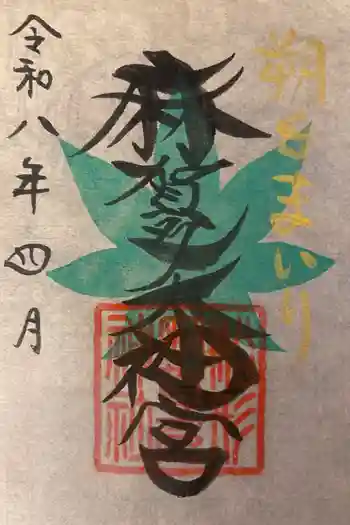 朔日まいり
麻賀多大神宮
令和八年四月